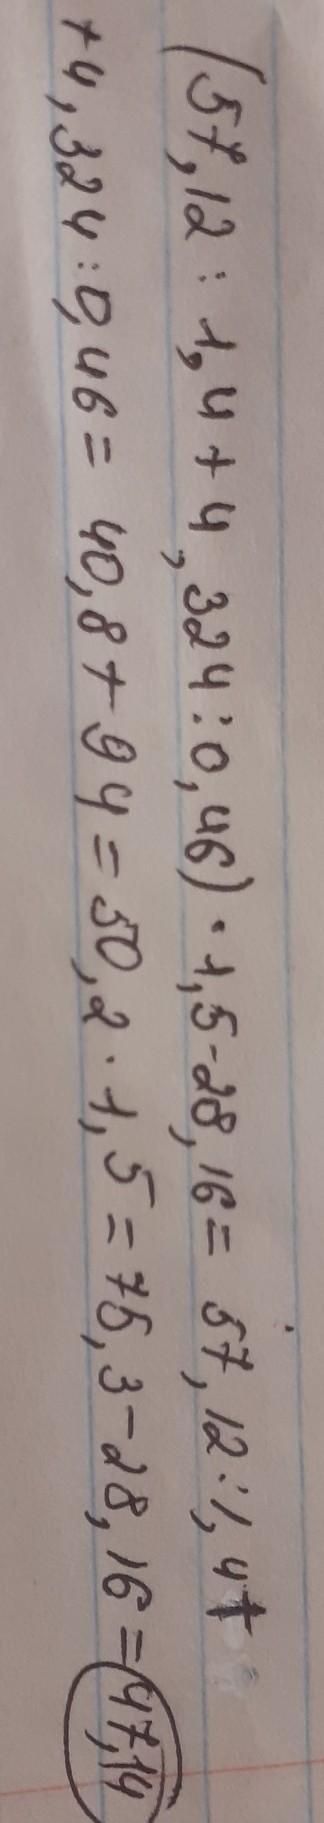 (57,12 : 1,4 + 4,324 : 0,46) · 1,5 - 28,16 = 57,12 : 1,4 +
+ 4,324 : 0,46 = 40,8 + 9 4 = 50,2 · 1,5 = 75,3 - 28,16 = 47,14